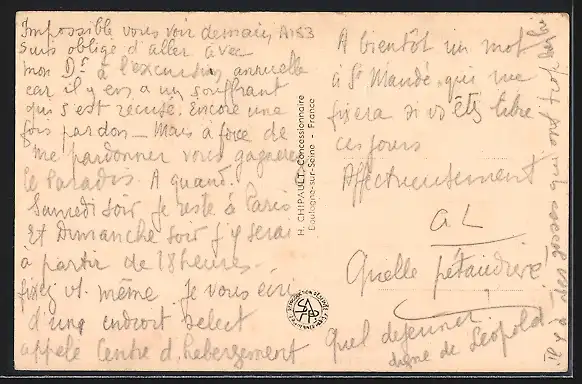 Impossible vous voir demain, A153
suis obligé d'aller avec
mon Dr à l'excursion annuelle
car il y en a un souffrant
qui s'est récusé. Encore une
fois pardon — Mais à force de
me pardonner vous gagnerez
le Paradis. A quand?
Samedi soir je reste à Paris
et Dimanche soir j'y serai
à partir de 18 heures.
fixez vs même. Je vous écris
d'un endroit select
appelé Centre d'hébergement
H. CHIPAULT, Concessionnaire
Boulogne-sur-Seine - France
A bientôt un mot
à St Mandé, qui me
fixera si vs êtes libre
ces jours
Affectueusement
a L
Quelle pétaudière!
Quel dejeuner
digne de Léopold